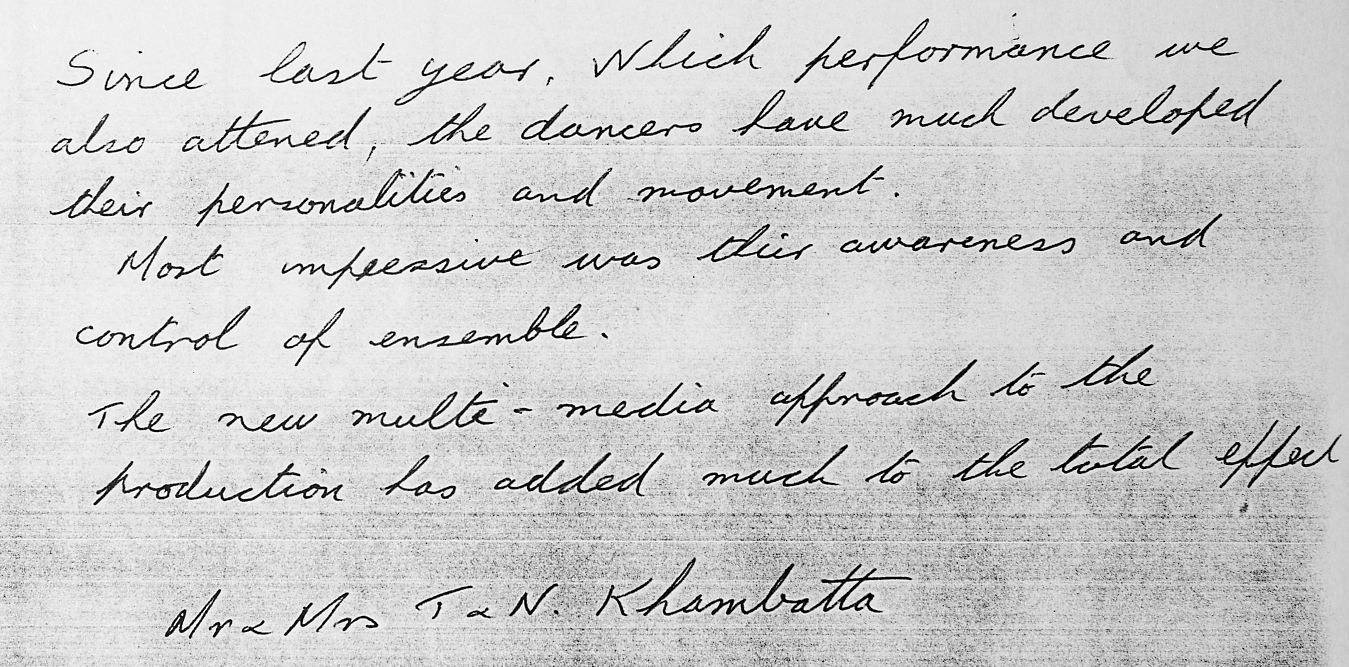 Since last year, Which performance we
also attened, the dancers have much developed
their personalities and movement.
Most impressive was their awareness and
control of ensemble.
The new multi-media approach to the
production has added much to the total effect
Mr & Mrs T & N. Khambatta